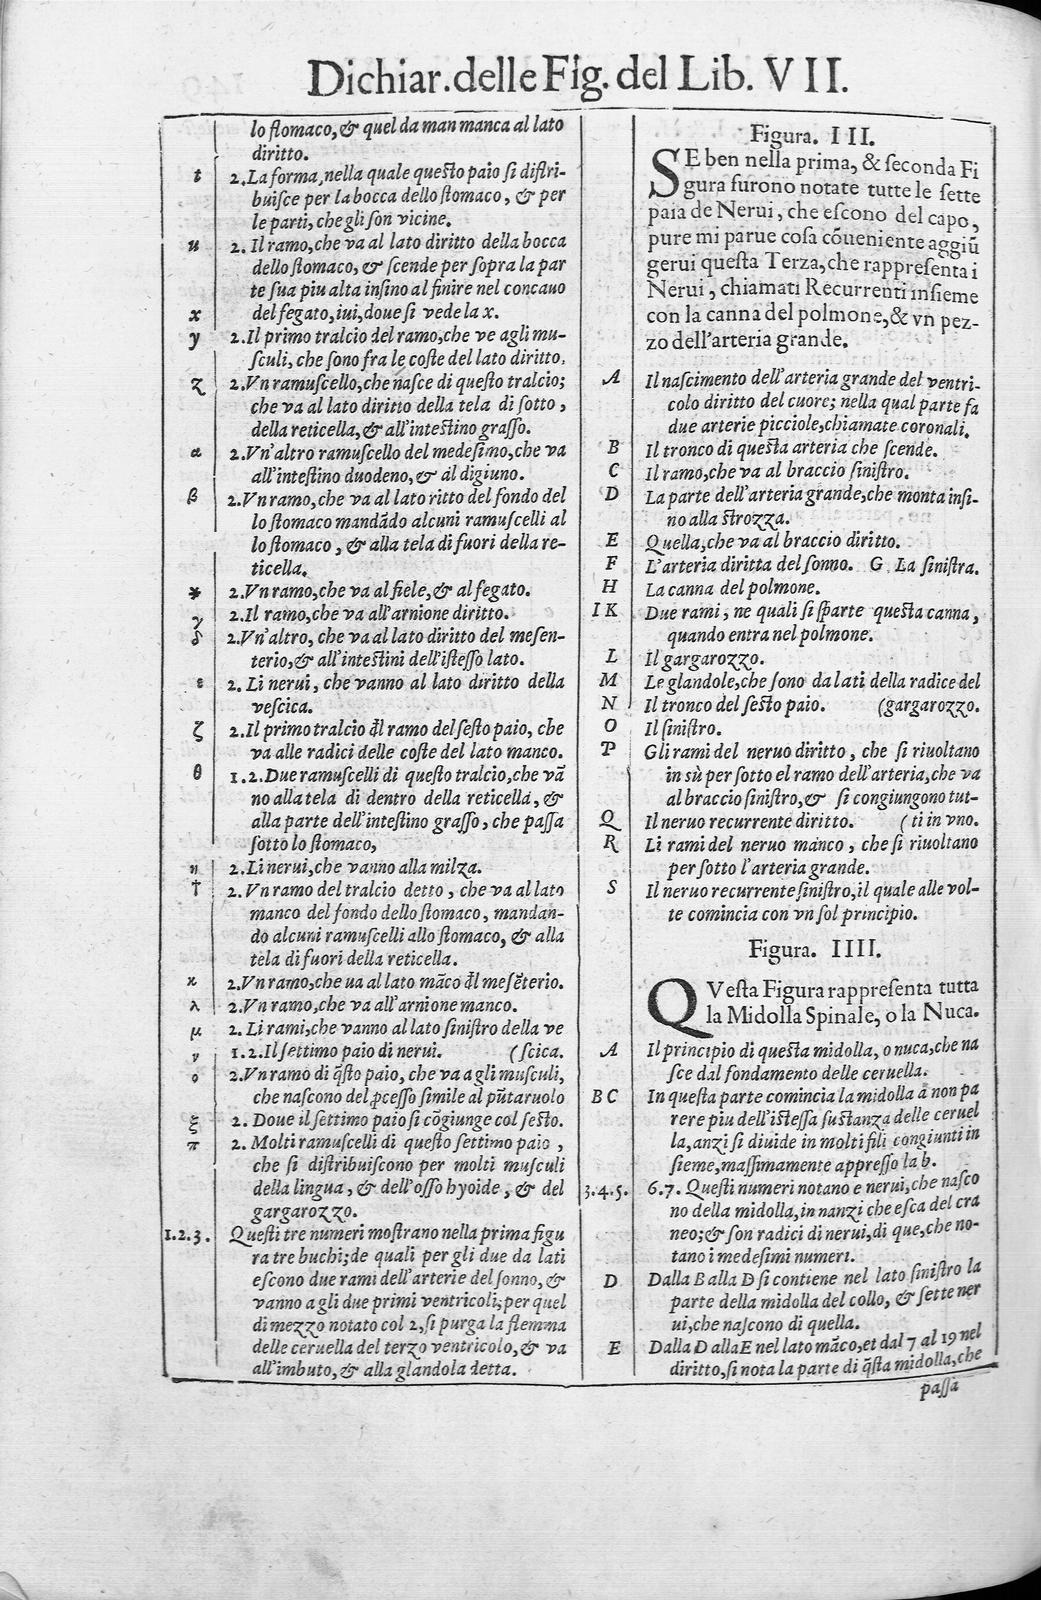 Dichiar. delle Fig. del Lib. VII.
lo stomaco, & quel da man manca al lato
diritto.
t 2. La forma, nella quale questo paio si distri-
buisce per la bocca dello stomaco, & per
le parti, che gli son vicine.
u 2. Il ramo, che va al lato diritto della bocca
dello stomaco, & scende per sopra la par
te sua piu alta insino al finire nel concauo
x del fegato, iui, doue si vede la x.
y 2. Il primo tralcio del ramo, che ve agli mu-
sculi, che sono fra le coste del lato diritto.
z 2. Vn ramuscello, che nasce di questo tralcio;
che va al lato diritto della tela di sotto,
della reticella, & all'intestino grasso.
α 2. Vn'altro ramuscello del medesimo, che va
all'intestino duodeno, & al digiuno.
β 2. Vn ramo, che va al lato ritto del fondo del
lo stomaco mandãdo alcuni ramuscelli al
lo stomaco, & alla tela di fuori della re-
ticella.
* 2. Vn ramo, che va al fiele, & al fegato.
γ 2. Il ramo, che va all'arnione diritto.
δ 2. Vn'altro, che va al lato diritto del mesen-
terio, & all'intestini dell'istesso lato.
ε 2. Li nerui, che vanno al lato diritto della
vescica.
ζ 2. Il primo tralcio đl ramo del sesto paio, che
va alle radici delle coste del lato manco.
θ 1. 2. Due ramuscelli di questo tralcio, che vã
no alla tela di dentro della reticella, &
alla parte dell'intestino grasso, che passa
sotto lo stomaco,
η 2. Li nerui, che vanno alla milza.
† 2. Vn ramo del tralcio detto, che va al lato
manco del fondo dello stomaco, mandan-
do alcuni ramuscelli allo stomaco, & alla
tela di fuori della reticella.
κ 2. Vn ramo, che ua al lato mãco đl mesẽterio.
λ 2. Vn ramo, che va all'arnione manco.
μ 2. Li rami, che vanno al lato sinistro della ve
ν 1. 2. Il settimo paio di nerui. (scica.
ο 2. Vn ramo di q̃sto paio, che va agli musculi,
che nascono del ꝓcesso simile al pũtaruolo
ξ 2. Doue il settimo paio si cõgiunge col sesto.
π 2. Molti ramuscelli di questo settimo paio,
che si distribuiscono per molti musculi
della lingua, & dell'osso hyoide, & del
gargarozzo.
1. 2. 3. Questi tre numeri mostrano nella prima figu
ra tre buchi; de quali per gli due da lati
escono due rami dell'arterie del sonno, &
vanno agli due primi ventricoli; per quel
di mezzo notato col 2, si purga la flemma
delle ceruella del terzo ventricolo, & va
all'imbuto, & alla glandola detta.
Figura. III.
SE ben nella prima, & seconda Fi
gura furono notate tutte le sette
paia de Nerui, che escono del capo,
pure mi parue cosa cõueniente aggiũ
gerui questa Terza, che rappresenta i
Nerui, chiamati Recurrenti insieme
con la canna del polmone, & vn pez-
zo dell'arteria grande.
A Il nascimento dell'arteria grande del ventri-
colo diritto del cuore; nella qual parte fa
due arterie picciole, chiamate coronali.
B Il tronco di questa arteria che scende.
C Il ramo, che va al braccio sinistro.
D La parte dell'arteria grande, che monta insi-
no alla strozza.
E Quella, che va al braccio diritto.
F L'arteria diritta del sonno. G La sinistra.
H La canna del polmone.
I K Due rami, ne quali si sparte questa canna,
quando entra nel polmone.
L Il gargarozzo.
M Le glandole, che sono da lati della radice del
N Il tronco del sesto paio. (gargarozzo.
O Il sinistro.
P Gli rami del neruo diritto, che si riuoltano
in sù per sotto el ramo dell'arteria, che va
al braccio sinistro, & si congiungono tut-
Q Il neruo recurrente diritto. (ti in vno.
R Li rami del neruo manco, che si riuoltano
per sotto l'arteria grande.
S Il neruo recurrente sinistro, il quale alle vol-
te comincia con vn sol principio.
Figura. IIII.
QVesta Figura rappresenta tutta
la Midolla Spinale, o la Nuca.
A Il principio di questa midolla, o nuca, che na
sce dal fondamento delle ceruella.
B C In questa parte comincia la midolla à non pa
rere piu dell'istessa sustanza delle ceruel
la, anzi si diuide in molti fili congiunti in
sieme, massimamente appresso la b.
3. 4. 5. 6. 7. Questi numeri notano e nerui, che nasco
no della midolla, in nanzi che esca del cra
neo; & son radici di nerui, di que, che no-
tano i medesimi numeri.
D Dalla B alla D si contiene nel lato sinistro la
parte della midolla del collo, & sette ner
ui, che nascono di quella.
E Dalla D alla E nel lato mãco, et dal 7 al 19 nel
diritto, si nota la parte di q̃sta midolla, che
passa